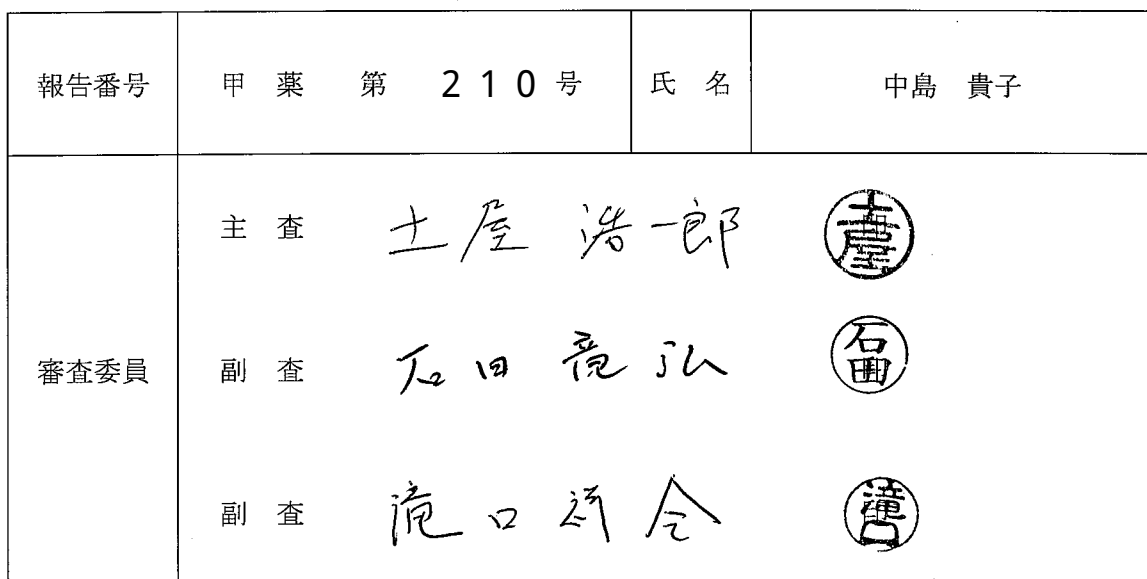 報告番号 甲 薬 第 210 号 氏 名 中島 貴子
主 査 土屋 浩一郎 土屋
審査委員 副 査 石田 竜弘 石田
副 査 滝口 祥令 滝口